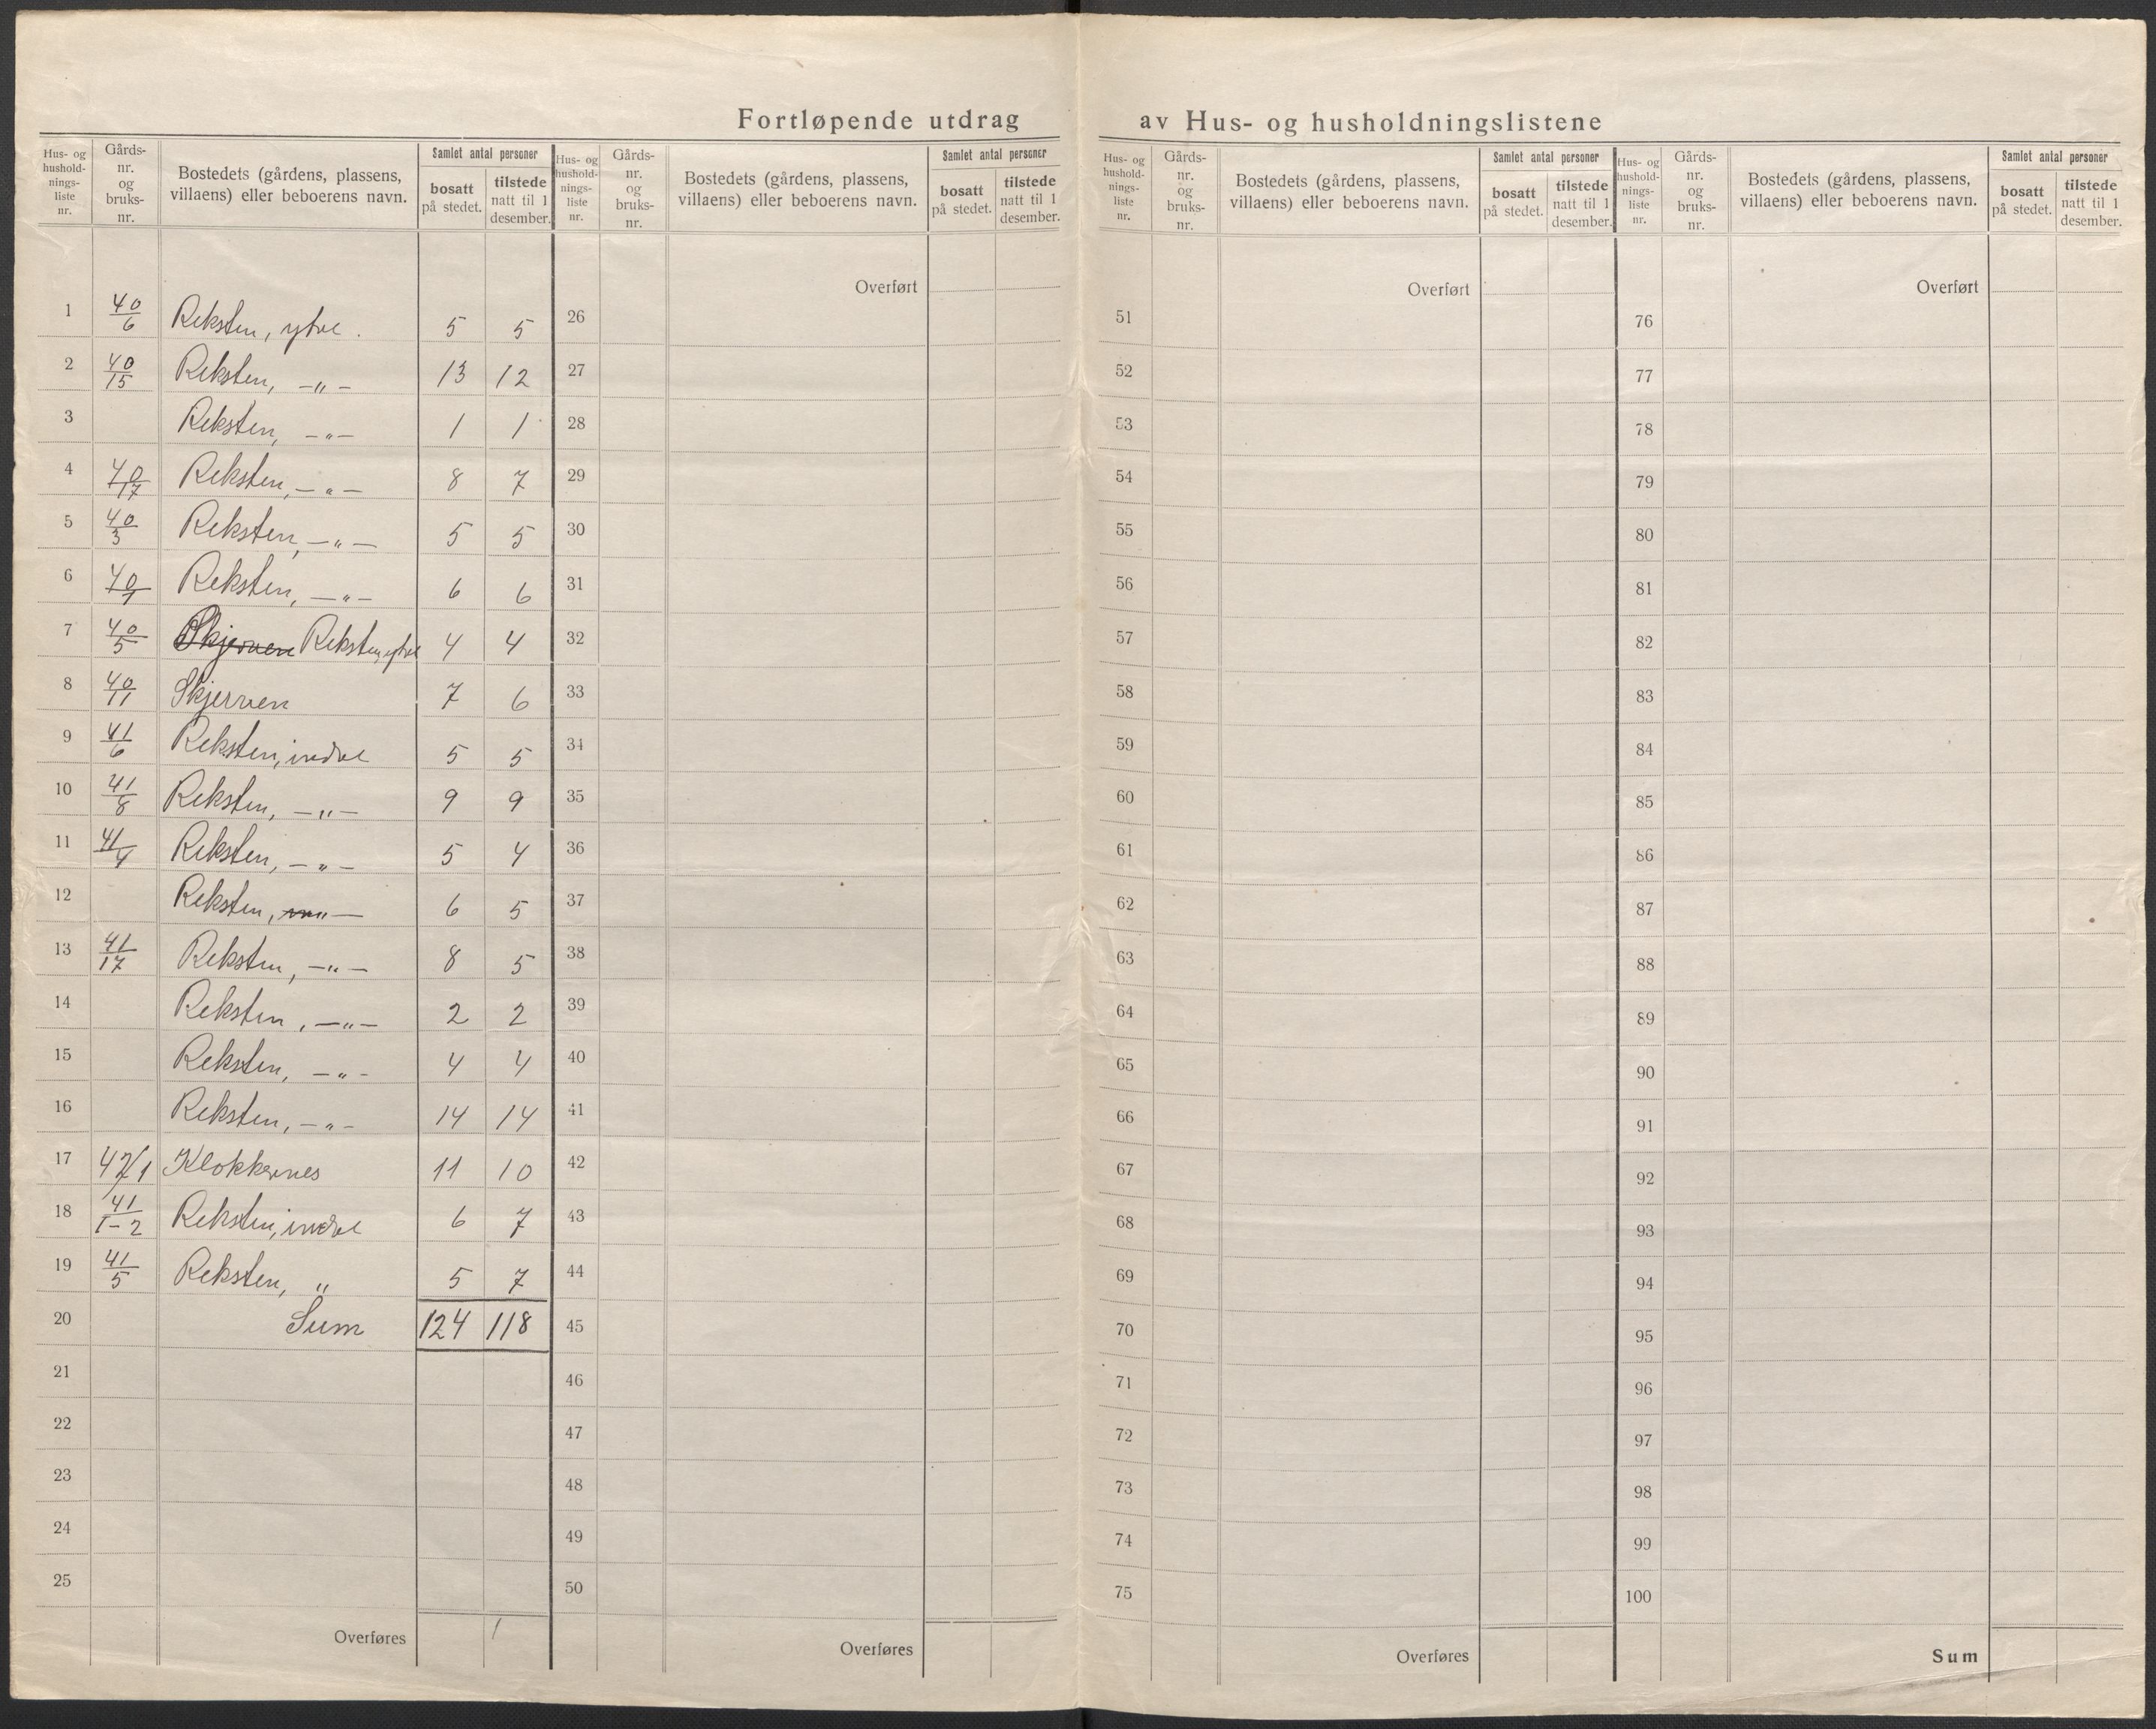 Fortløpende utdrag av Hus- og husholdningslistene
Hus- og hushold-nings-liste nr. Gårds-nr. og bruks-nr. Bostedets (gårdens, plassens, villaens) eller beboerens navn. Samlet antal personer bosatt på stedet. tilstede natt til 1 desember.
Hus- og hushold-nings-liste nr. Gårds-nr. og bruks-nr. Bostedets (gårdens, plassens, villaens) eller beboerens navn. Samlet antal personer bosatt på stedet. tilstede natt til 1 desember.
Hus- og hushold-nings-liste nr. Gårds-nr. og bruks-nr. Bostedets (gårdens, plassens, villaens) eller beboerens navn. Samlet antal personer bosatt på stedet. tilstede natt til 1 desember.
Hus- og hushold-nings-liste nr. Gårds-nr. og bruks-nr. Bostedets (gårdens, plassens, villaens) eller beboerens navn. Samlet antal personer bosatt på stedet. tilstede natt til 1 desember.
1 40/6 Reksten, ytre. 5 5
2 40/15 Reksten, -„- 13 12
3 Reksten, -„- 1 1
4 40/17 Reksten, -„- 8 7
5 40/3 Reksten, -„- 5 5
6 40/1 Reksten, -„- 6 6
7 40/5 Skjerven Reksten, ytre 4 4
8 40/11 Skjerven 7 6
9 41/6 Reksten, indre 5 5
10 41/8 Reksten, -„- 9 9
11 41/4 Reksten, -„- 5 4
12 Reksten, „- 6 5
13 41/17 Reksten, -„- 8 5
14 Reksten, -„- 2 2
15 Reksten, -„- 4 4
16 Reksten, -„- 14 14
17 42/1 Klokkernes 11 10
18 41/1-2 Reksten, indre 6 7
19 41/5 Reksten, „ 5 7
20 Sum 124 118
21
22
23
24
25
Overføres
Overført
26
27
28
29
30
31
32
33
34
35
36
37
38
39
40
41
42
43
44
45
46
47
48
49
50
Overføres
Overført
51
52
53
54
55
56
57
58
59
60
61
62
63
64
65
66
67
68
69
70
71
72
73
74
75
Overføres
Overført
76
77
78
79
80
81
82
83
84
85
86
87
88
89
90
91
92
93
94
95
96
97
98
99
100
Sum